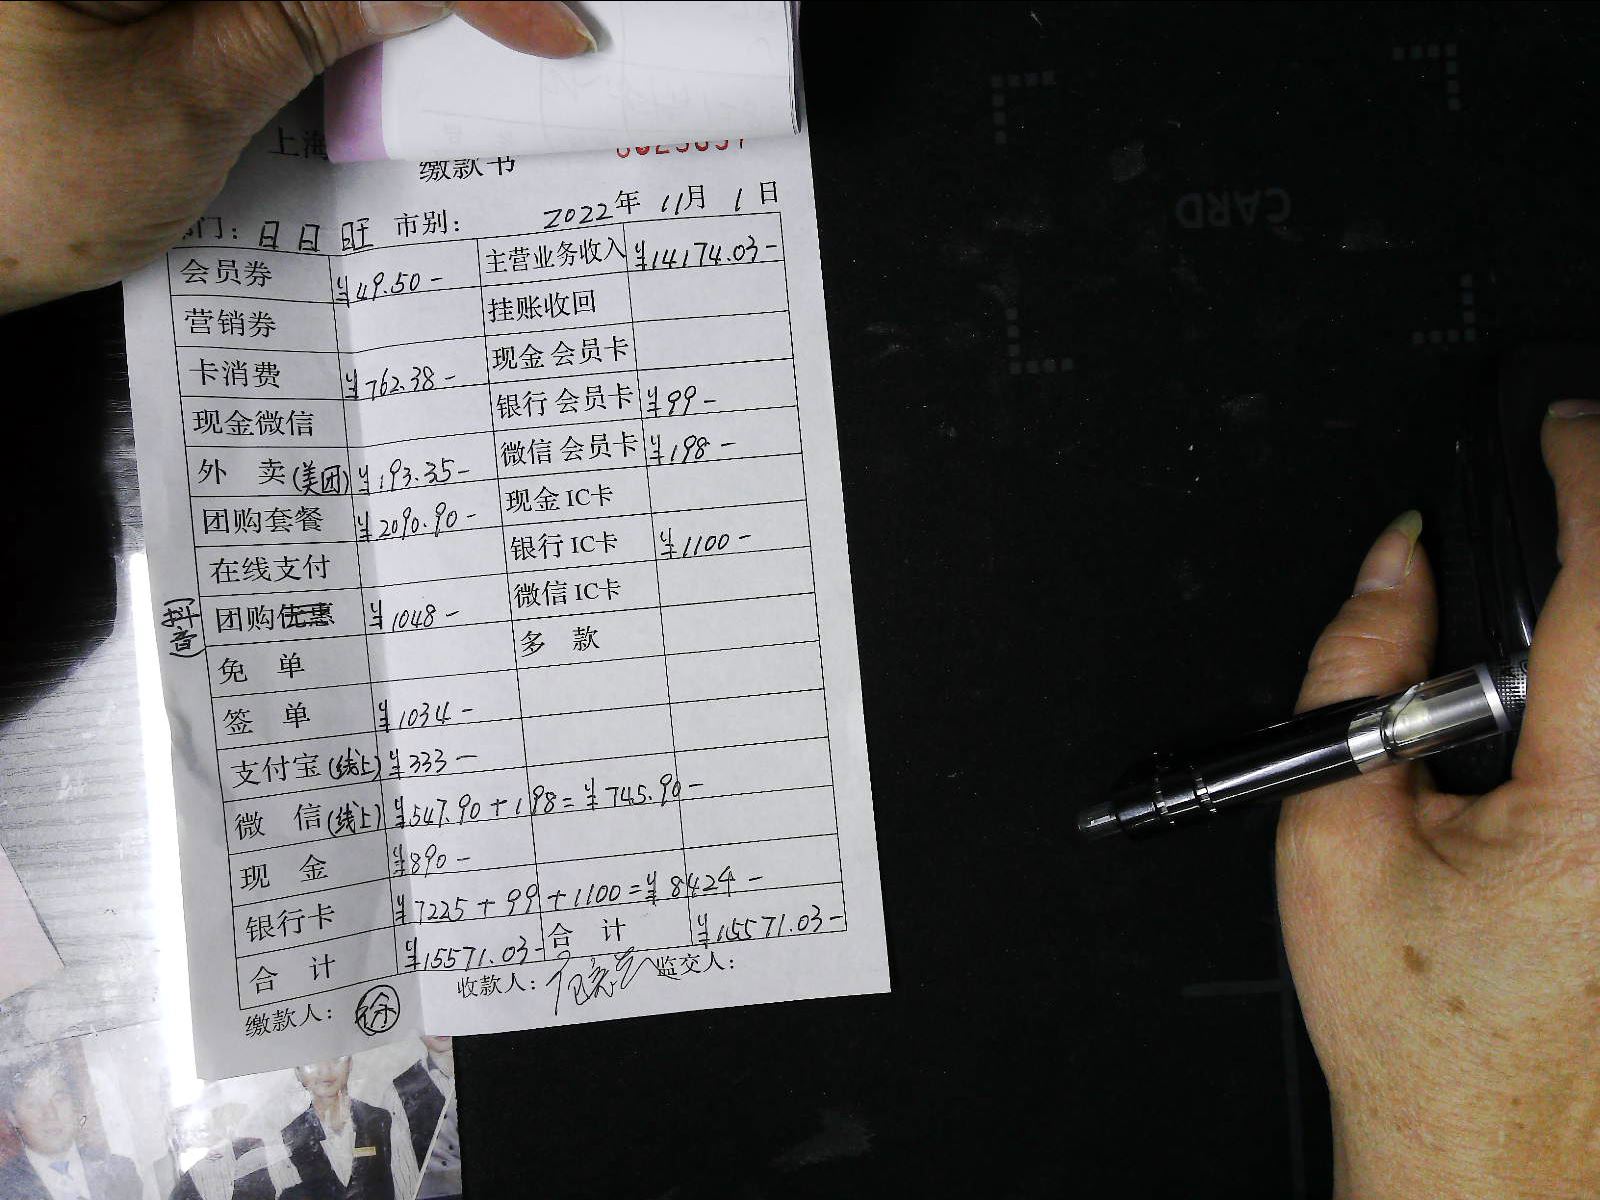 上海
缴款书
部门：日日旺 市别： 2022年 11月 1日
会员券 ¥49.50- 主营业务收入 ¥14174.03-
营销券 挂账收回
卡消费 ¥762.38- 现金会员卡
现金微信 银行会员卡 ¥99-
外 卖(美团) ¥193.35- 微信会员卡 ¥198-
团购套餐 ¥2090.90- 现金IC卡
在线支付 银行IC卡 ¥1100-
(抖音) 团购优惠 ¥1048- 微信IC卡
免 单 多 款
签 单 ¥1034-
支付宝(线上) ¥333-
微 信(线上) ¥547.90+198=¥745.90-
现 金 ¥890-
银行卡 ¥7225+99+1100=¥8424-
合 计 ¥15571.03- 合 计 ¥15571.03-
缴款人：徐 收款人： 监交人：
CARD